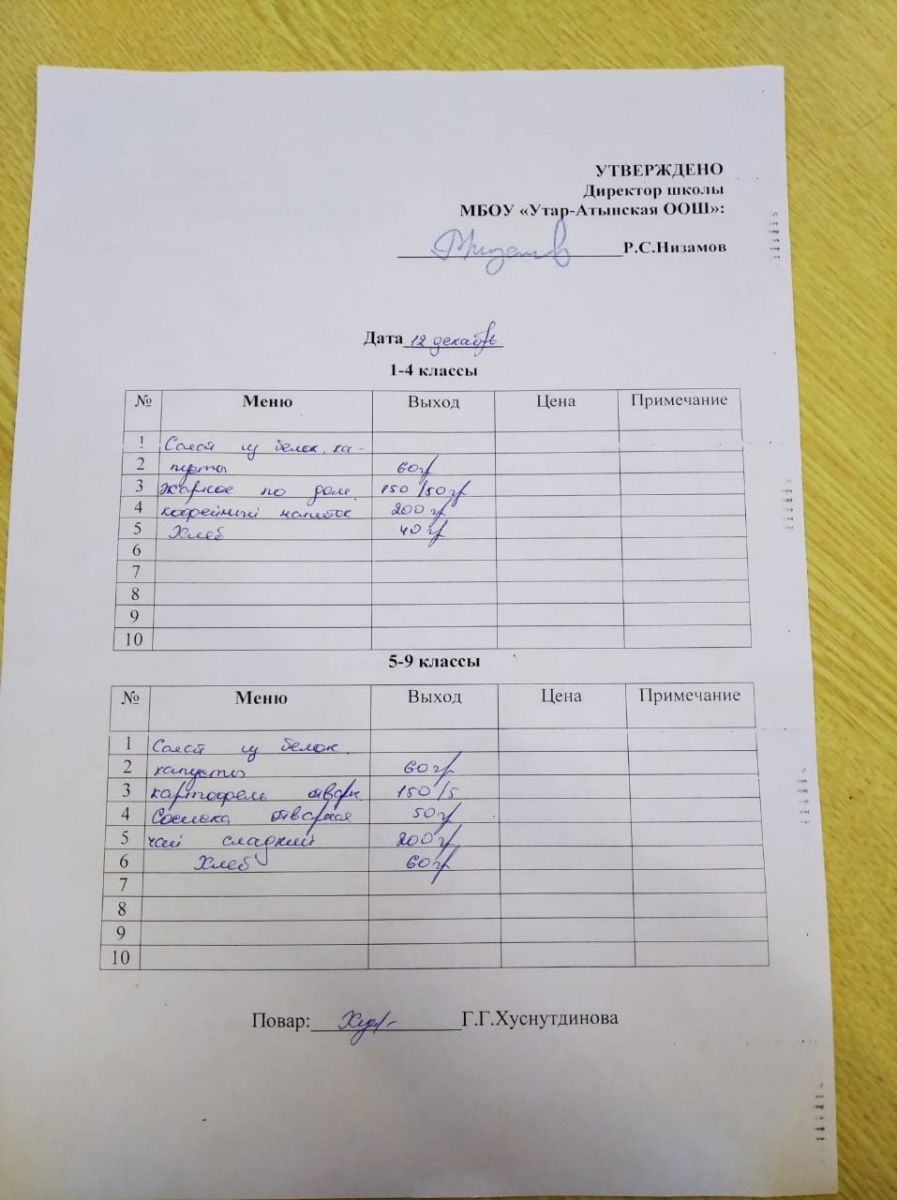 УТВЕРЖДЕНО
Директор школы
МБОУ «Утар-Атынская ООШ»:
Р.С.Низамов
Дата 12 декабрь
1-4 классы
№ Меню Выход Цена Примечание
1 Салат из белок. ка-
2 пусты 60гр
3 жаркое по дом. 150/50гр
4 кофейный напиток 200гр
5 Хлеб 40гр
6
7
8
9
10
5-9 классы
№ Меню Выход Цена Примечание
1 Салат из белок.
2 капусты 60гр
3 картофель отварн 150/5
4 Сосиска отварная 50гр
5 чай сладкий 200гр
6 Хлеб 60гр
7
8
9
10
Повар: Г.Г.Хуснутдинова